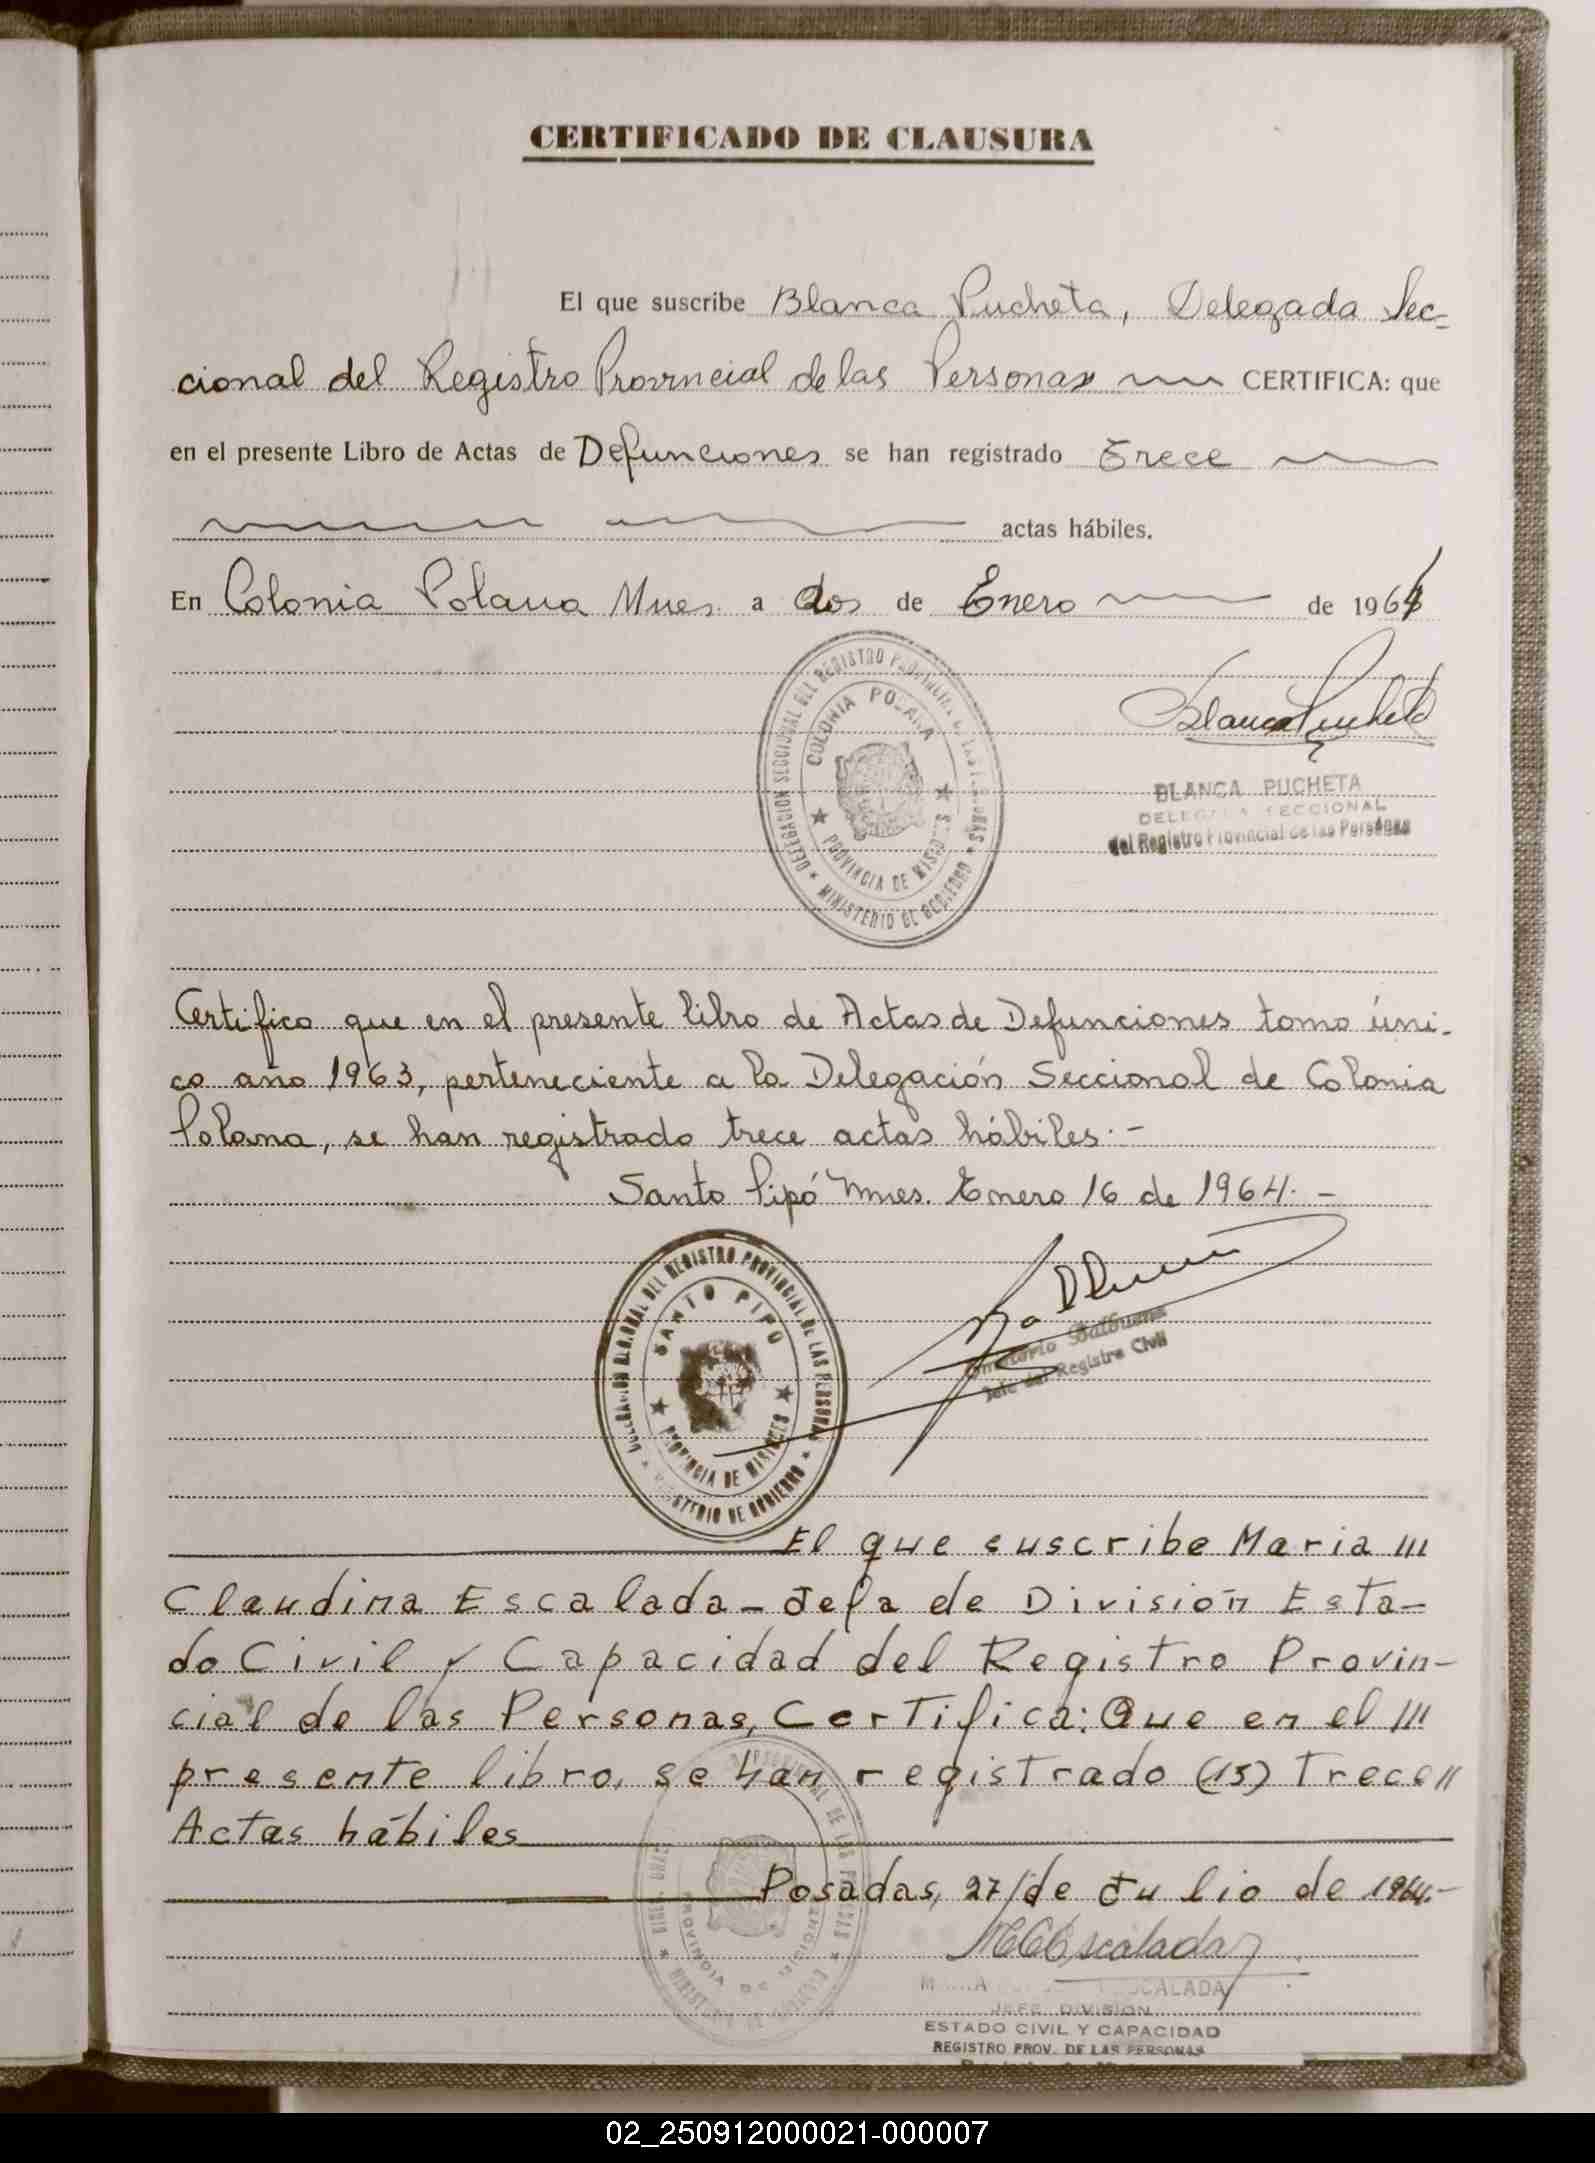 CERTIFICADO DE CLAUSURA
El que suscribe Blanca Pucheta, Delegada Sec-
cional del Registro Provincial de las Personas CERTIFICA: que
en el presente Libro de Actas de Defunciones se han registrado Trece
actas hábiles.
En Colonia Polana Mnes. a dos de Enero de 1964
DELEGACION SECCIONAL DEL REGISTRO PROVINCIAL DE LAS PERSONAS * MINISTERIO DE GOBIERNO *
COLONIA POLANA * PROVINCIA DE MISIONES *
Blanca Pucheta
BLANCA PUCHETA
DELEGADA SECCIONAL
del Registro Provincial de las Personas
Certifico que en el presente libro de Actas de Defunciones tomo úni-
co año 1963, perteneciente a la Delegación Seccional de Colonia
Polana, se han registrado trece actas hábiles.-
Santo Pipó Mnes. Enero 16 de 1964.-
DEL REGISTRO PROVINCIAL DE LAS PERSONAS * MINISTERIO DE GOBIERNO *
SANTO PIPO * PROVINCIA DE MISIONES *
Balbuena
Jefe del Registro Civil
El que suscribe Maria ///
Claudina Escalada-Jefa de División Esta-
do Civil y Capacidad del Registro Provin-
cial de las Personas, Certifica: Que en el ///
presente libro, se han registrado (13) Trece//
Actas hábiles
Posadas, 27/de Julio de 1964.-
MCEscalada
ESCALADA
JEFE DIVISION
ESTADO CIVIL Y CAPACIDAD
REGISTRO PROV. DE LAS PERSONAS
02_250912000021-000007